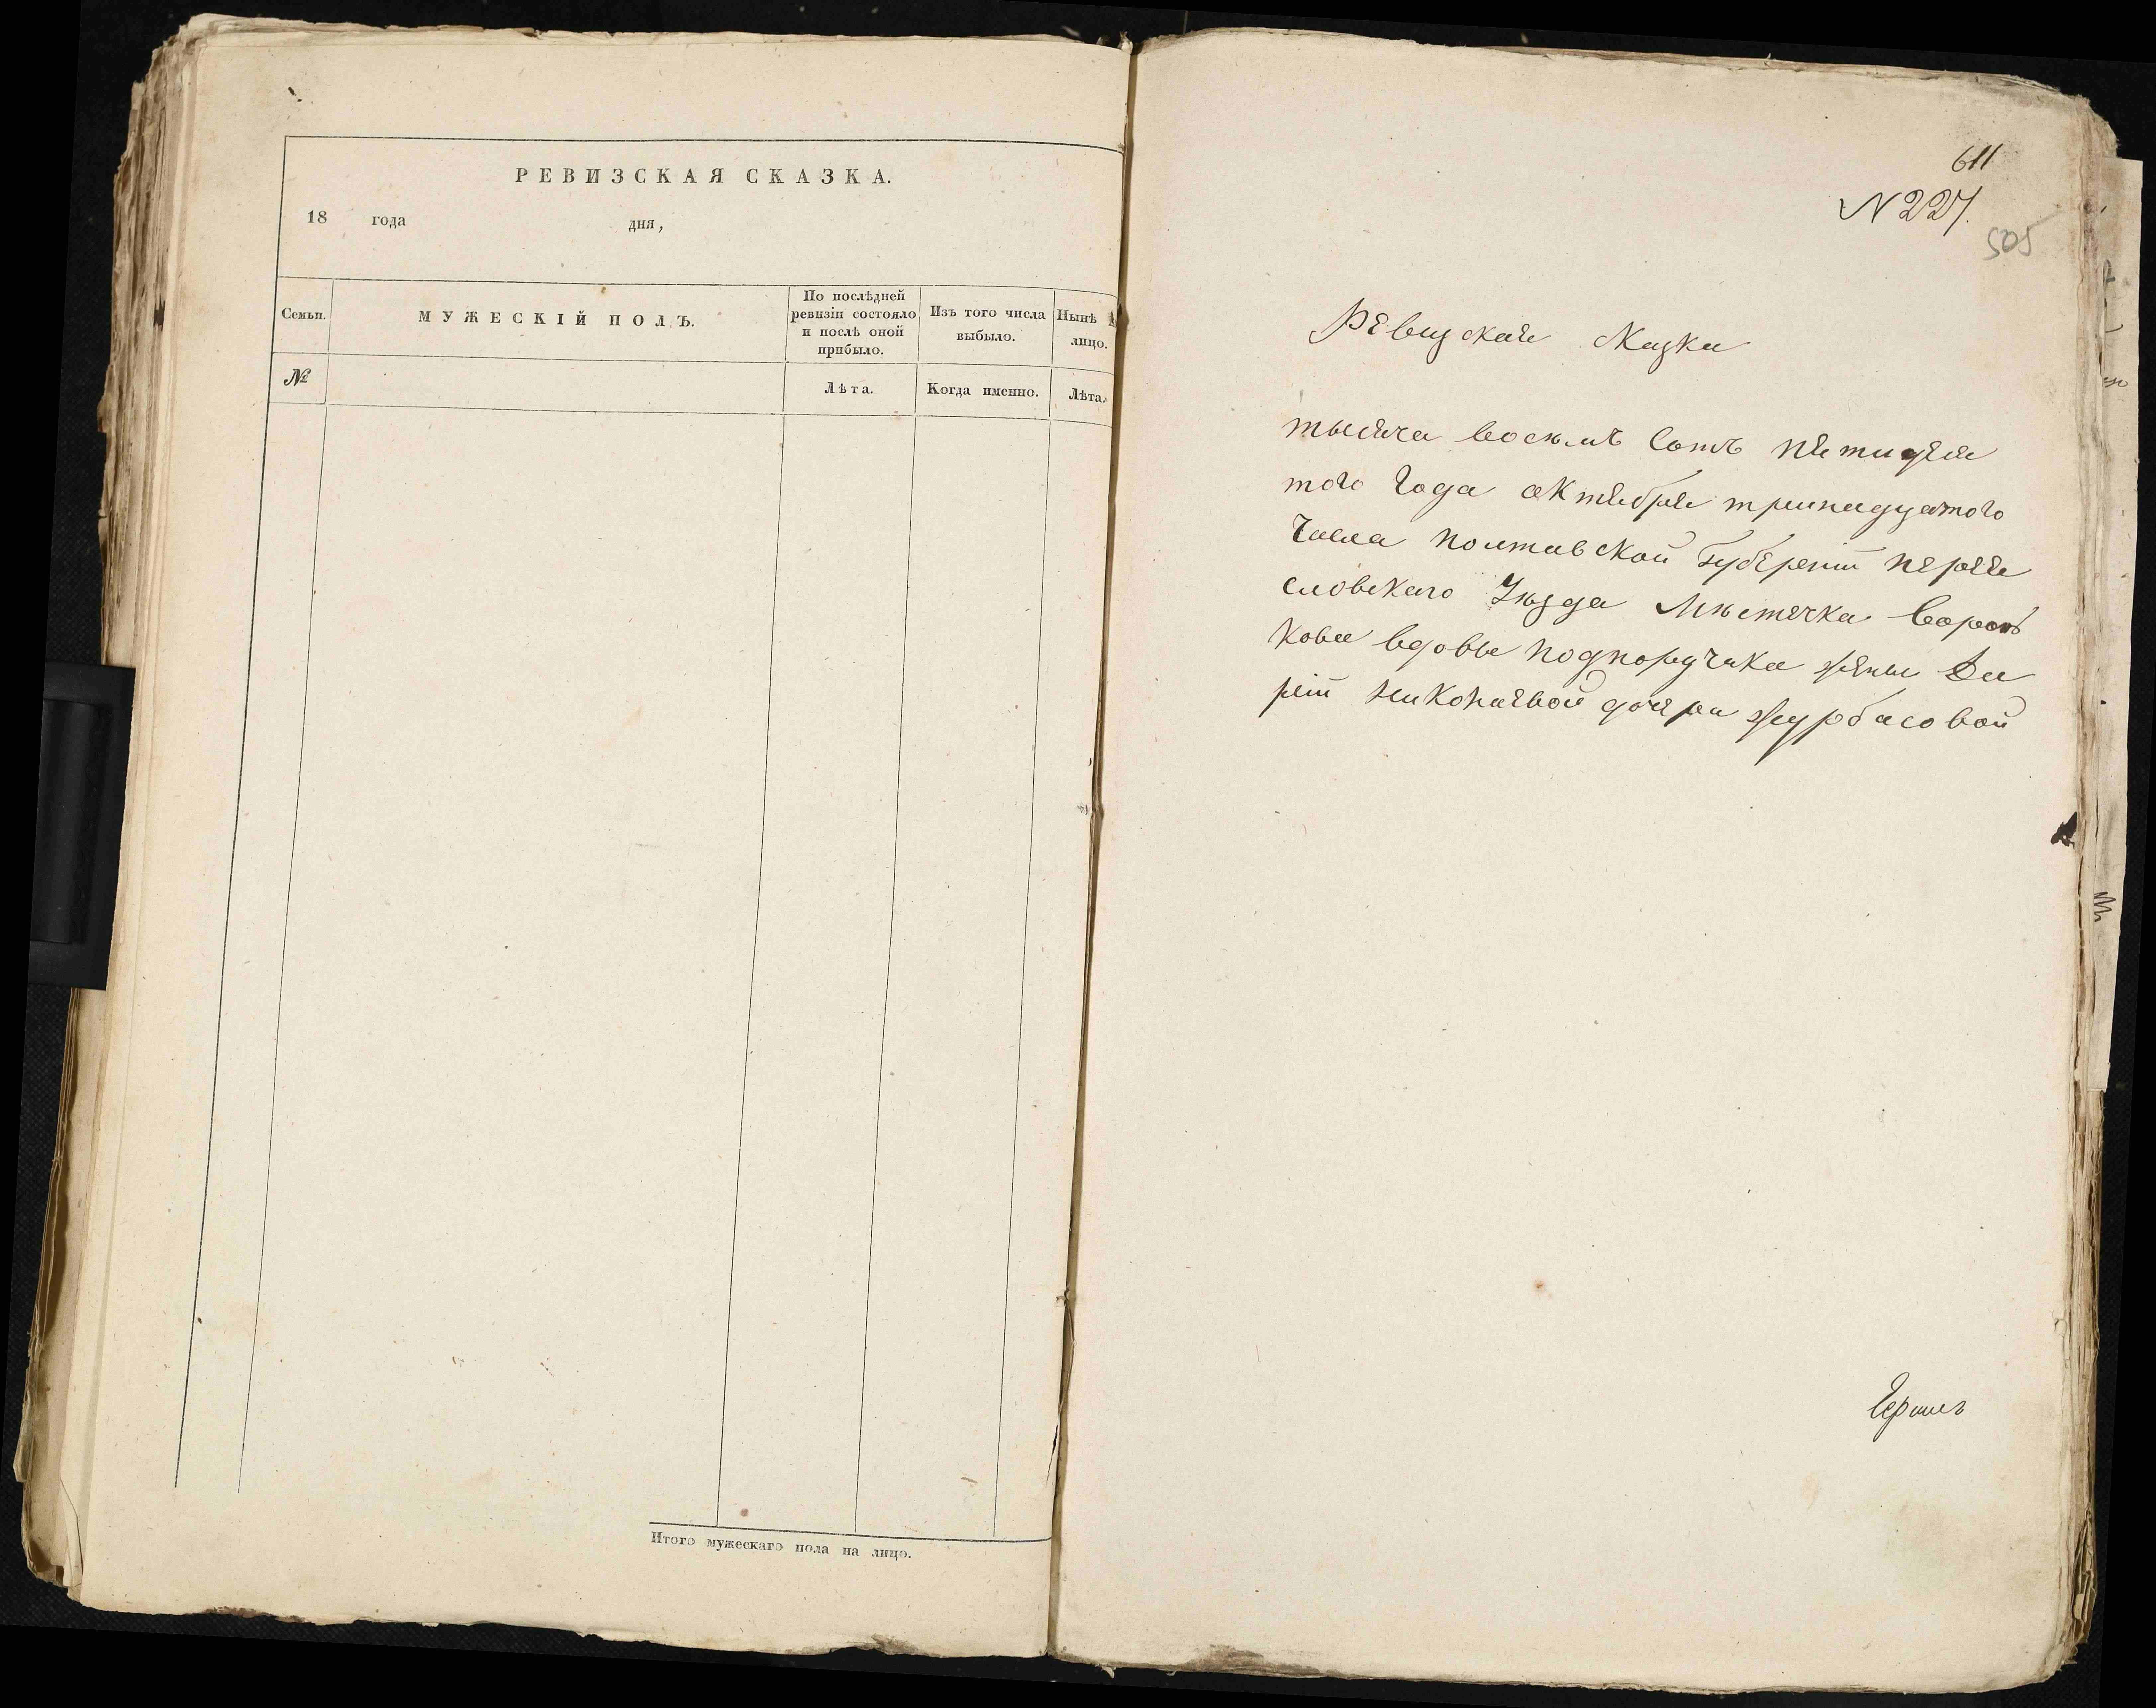 РЕВИЗСКАЯ СКАЗКА.
18 года дня,
Семьи.
МУЖЕСКІЙ ПОЛЪ.
По послѣдней
ревизіи состояло
и послѣ оной
прибыло.
Изъ того числа
выбыло.
Нынѣ
лицо.
№
Лѣта.
Когда именно.
Лѣта.
Итого мужескаго пола на лицо.
611
N 227.
505
Ревизская Сказка
тысяча восемъ сотъ пятидеся
того Года октября тринадцатого
Числа полтавской Губерніи перея
словскаго Уѣзда Мѣстечка Воронь
кова вдовы подпоручика жены
Николаевой дочери Журбасовой